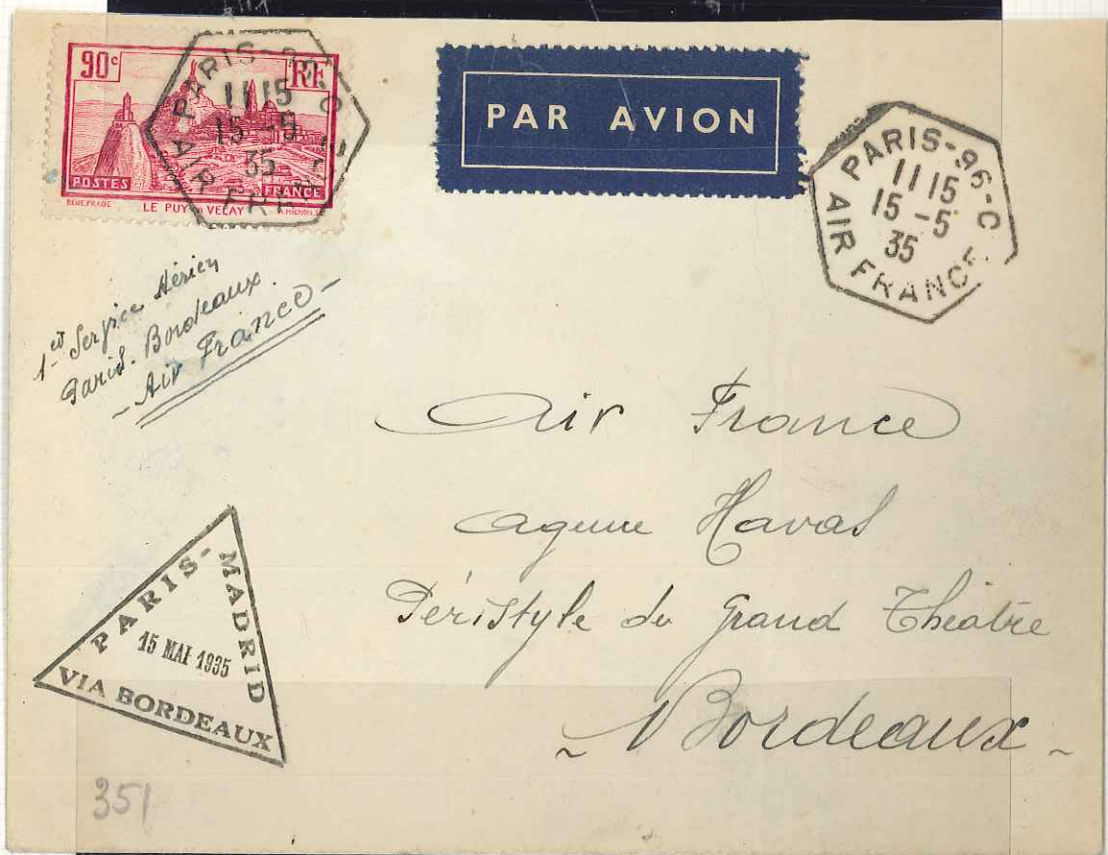 90c
RF
POSTES
FRANCE
RENE.PRADE
LE PUY EN VELAY
PARIS-96-C
11 15
15 -5
35
AIR FRANCE
PAR AVION
PARIS-96-C
11 15
15 -5
35
AIR FRANCE
1er Service Aérien
Paris. Bordeaux.
- Air France -
Air France
agence Havas
Péristyle du Grand Théâtre
~ Bordeaux ~
PARIS-MADRID
15 MAI 1935
VIA BORDEAUX
351